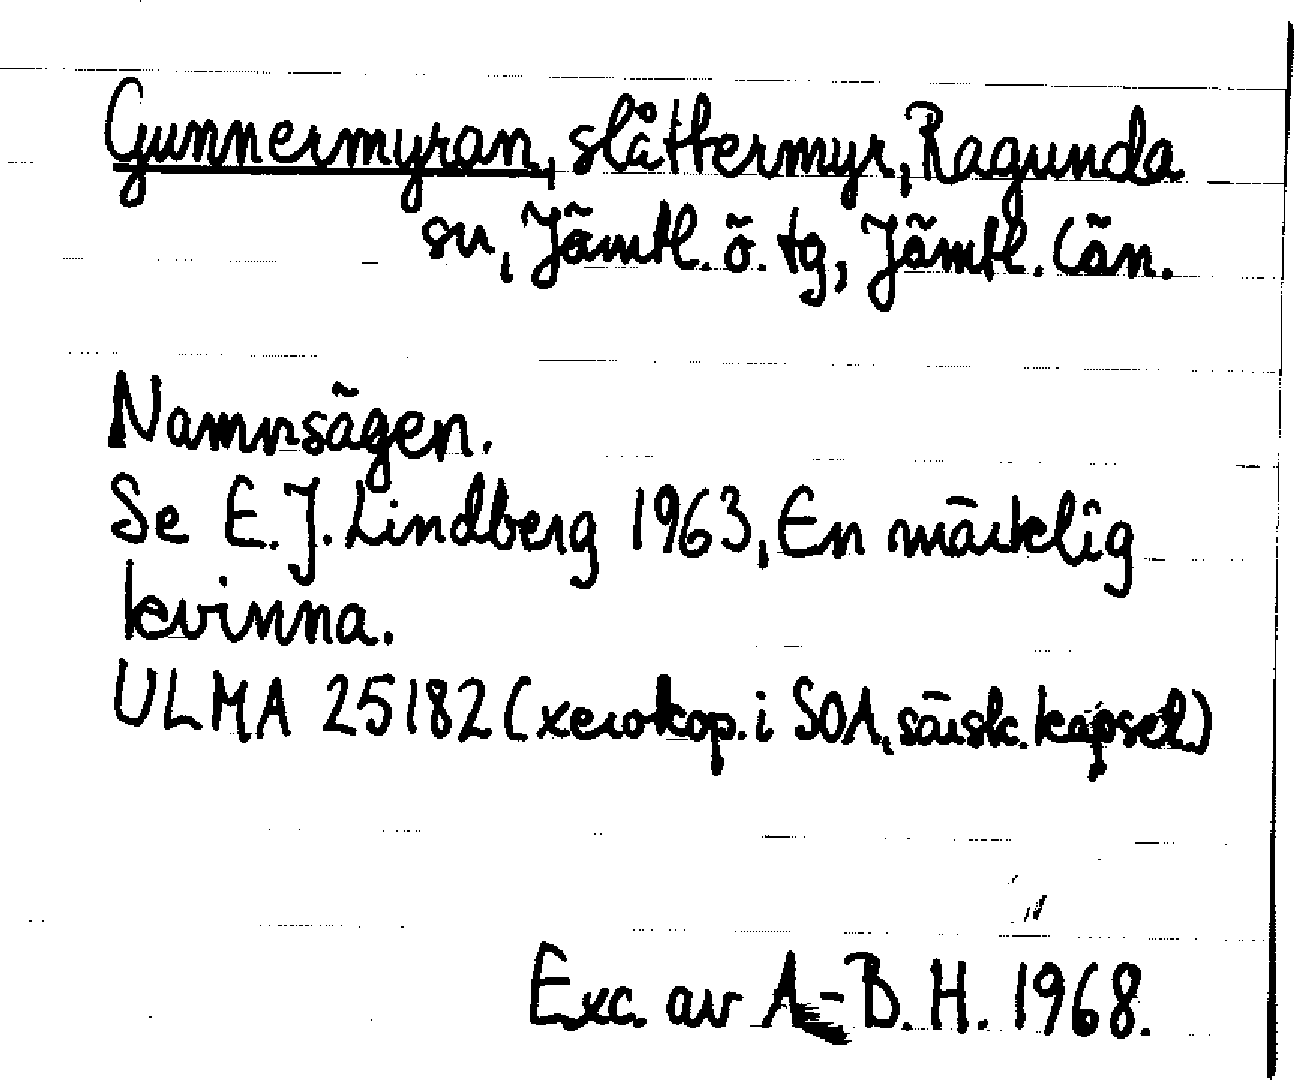 Gunnermyran, slåttermyr, Ragunda
sn, Jämtl. ö. tg, Jämtl. län.
Namnsägen.
Se E.J. Lindberg 1963, En märklig
kvinna.
ULMA 25182 (xerokop. i SOA, särsk. kapsel.)
Exc. av A-B. H. 1968.